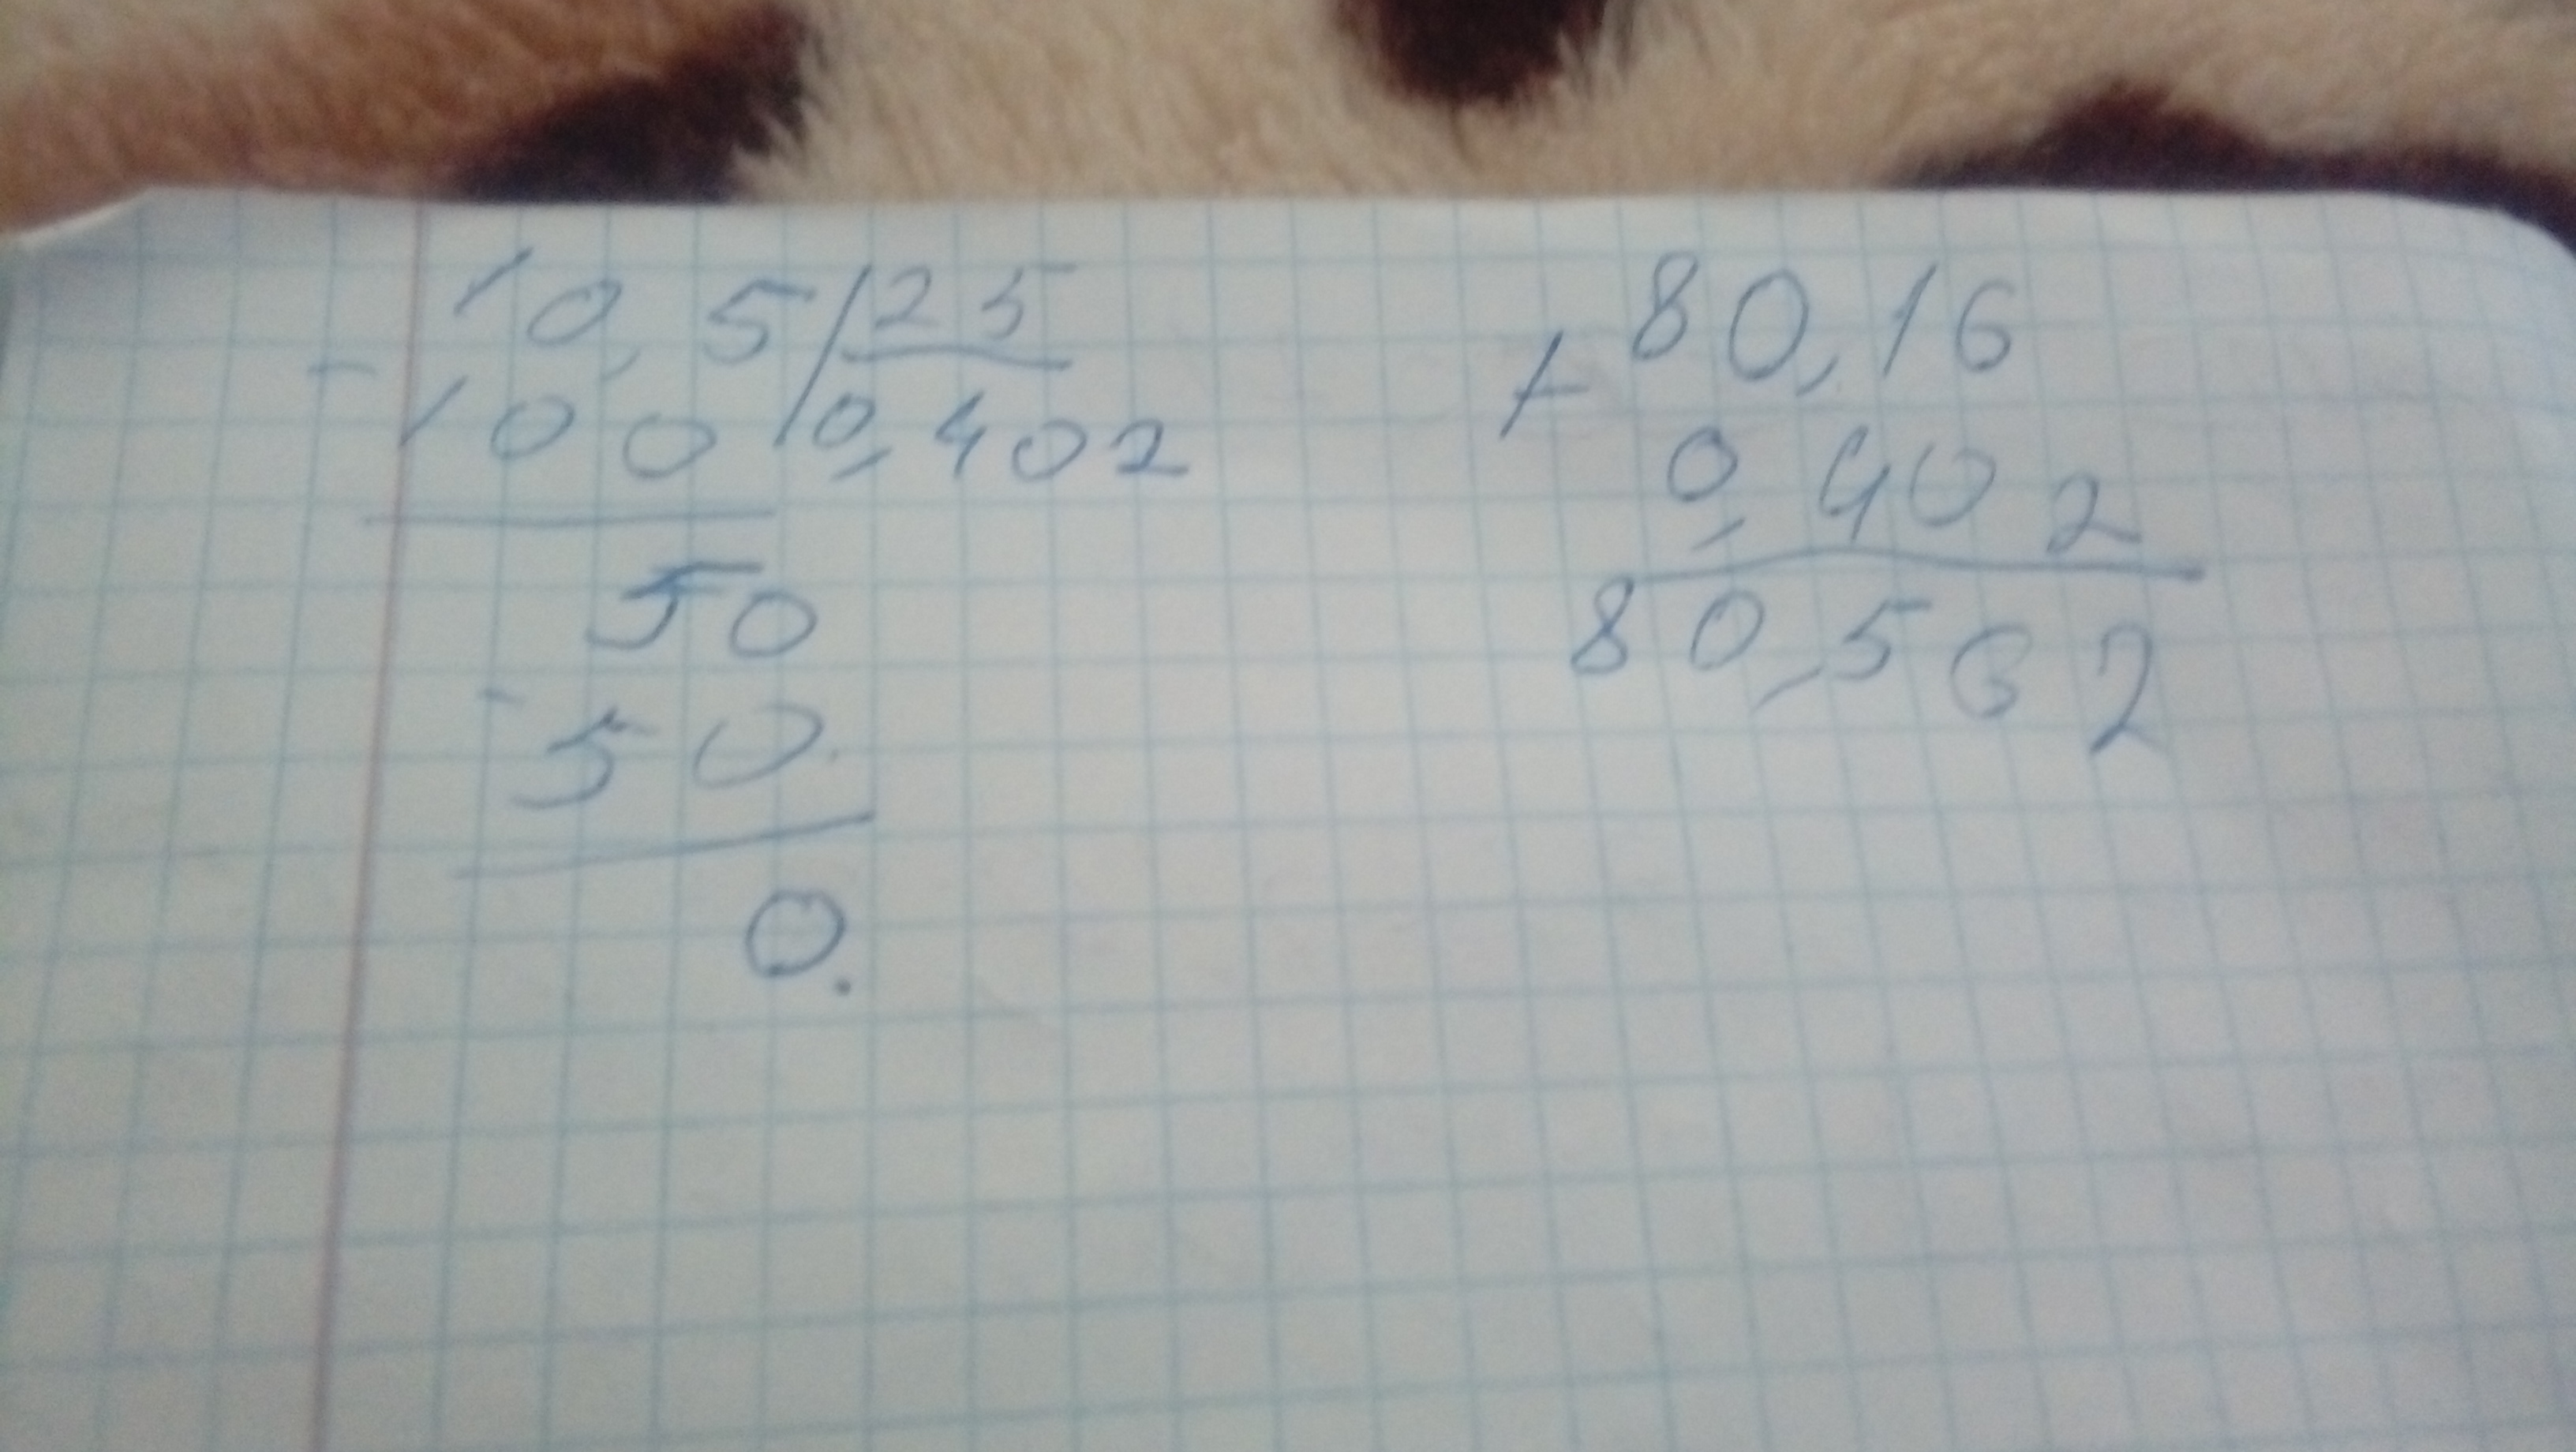 10,5 25
- 100 0,402
50
- 50
0.
80,16
+
0,402
80,562